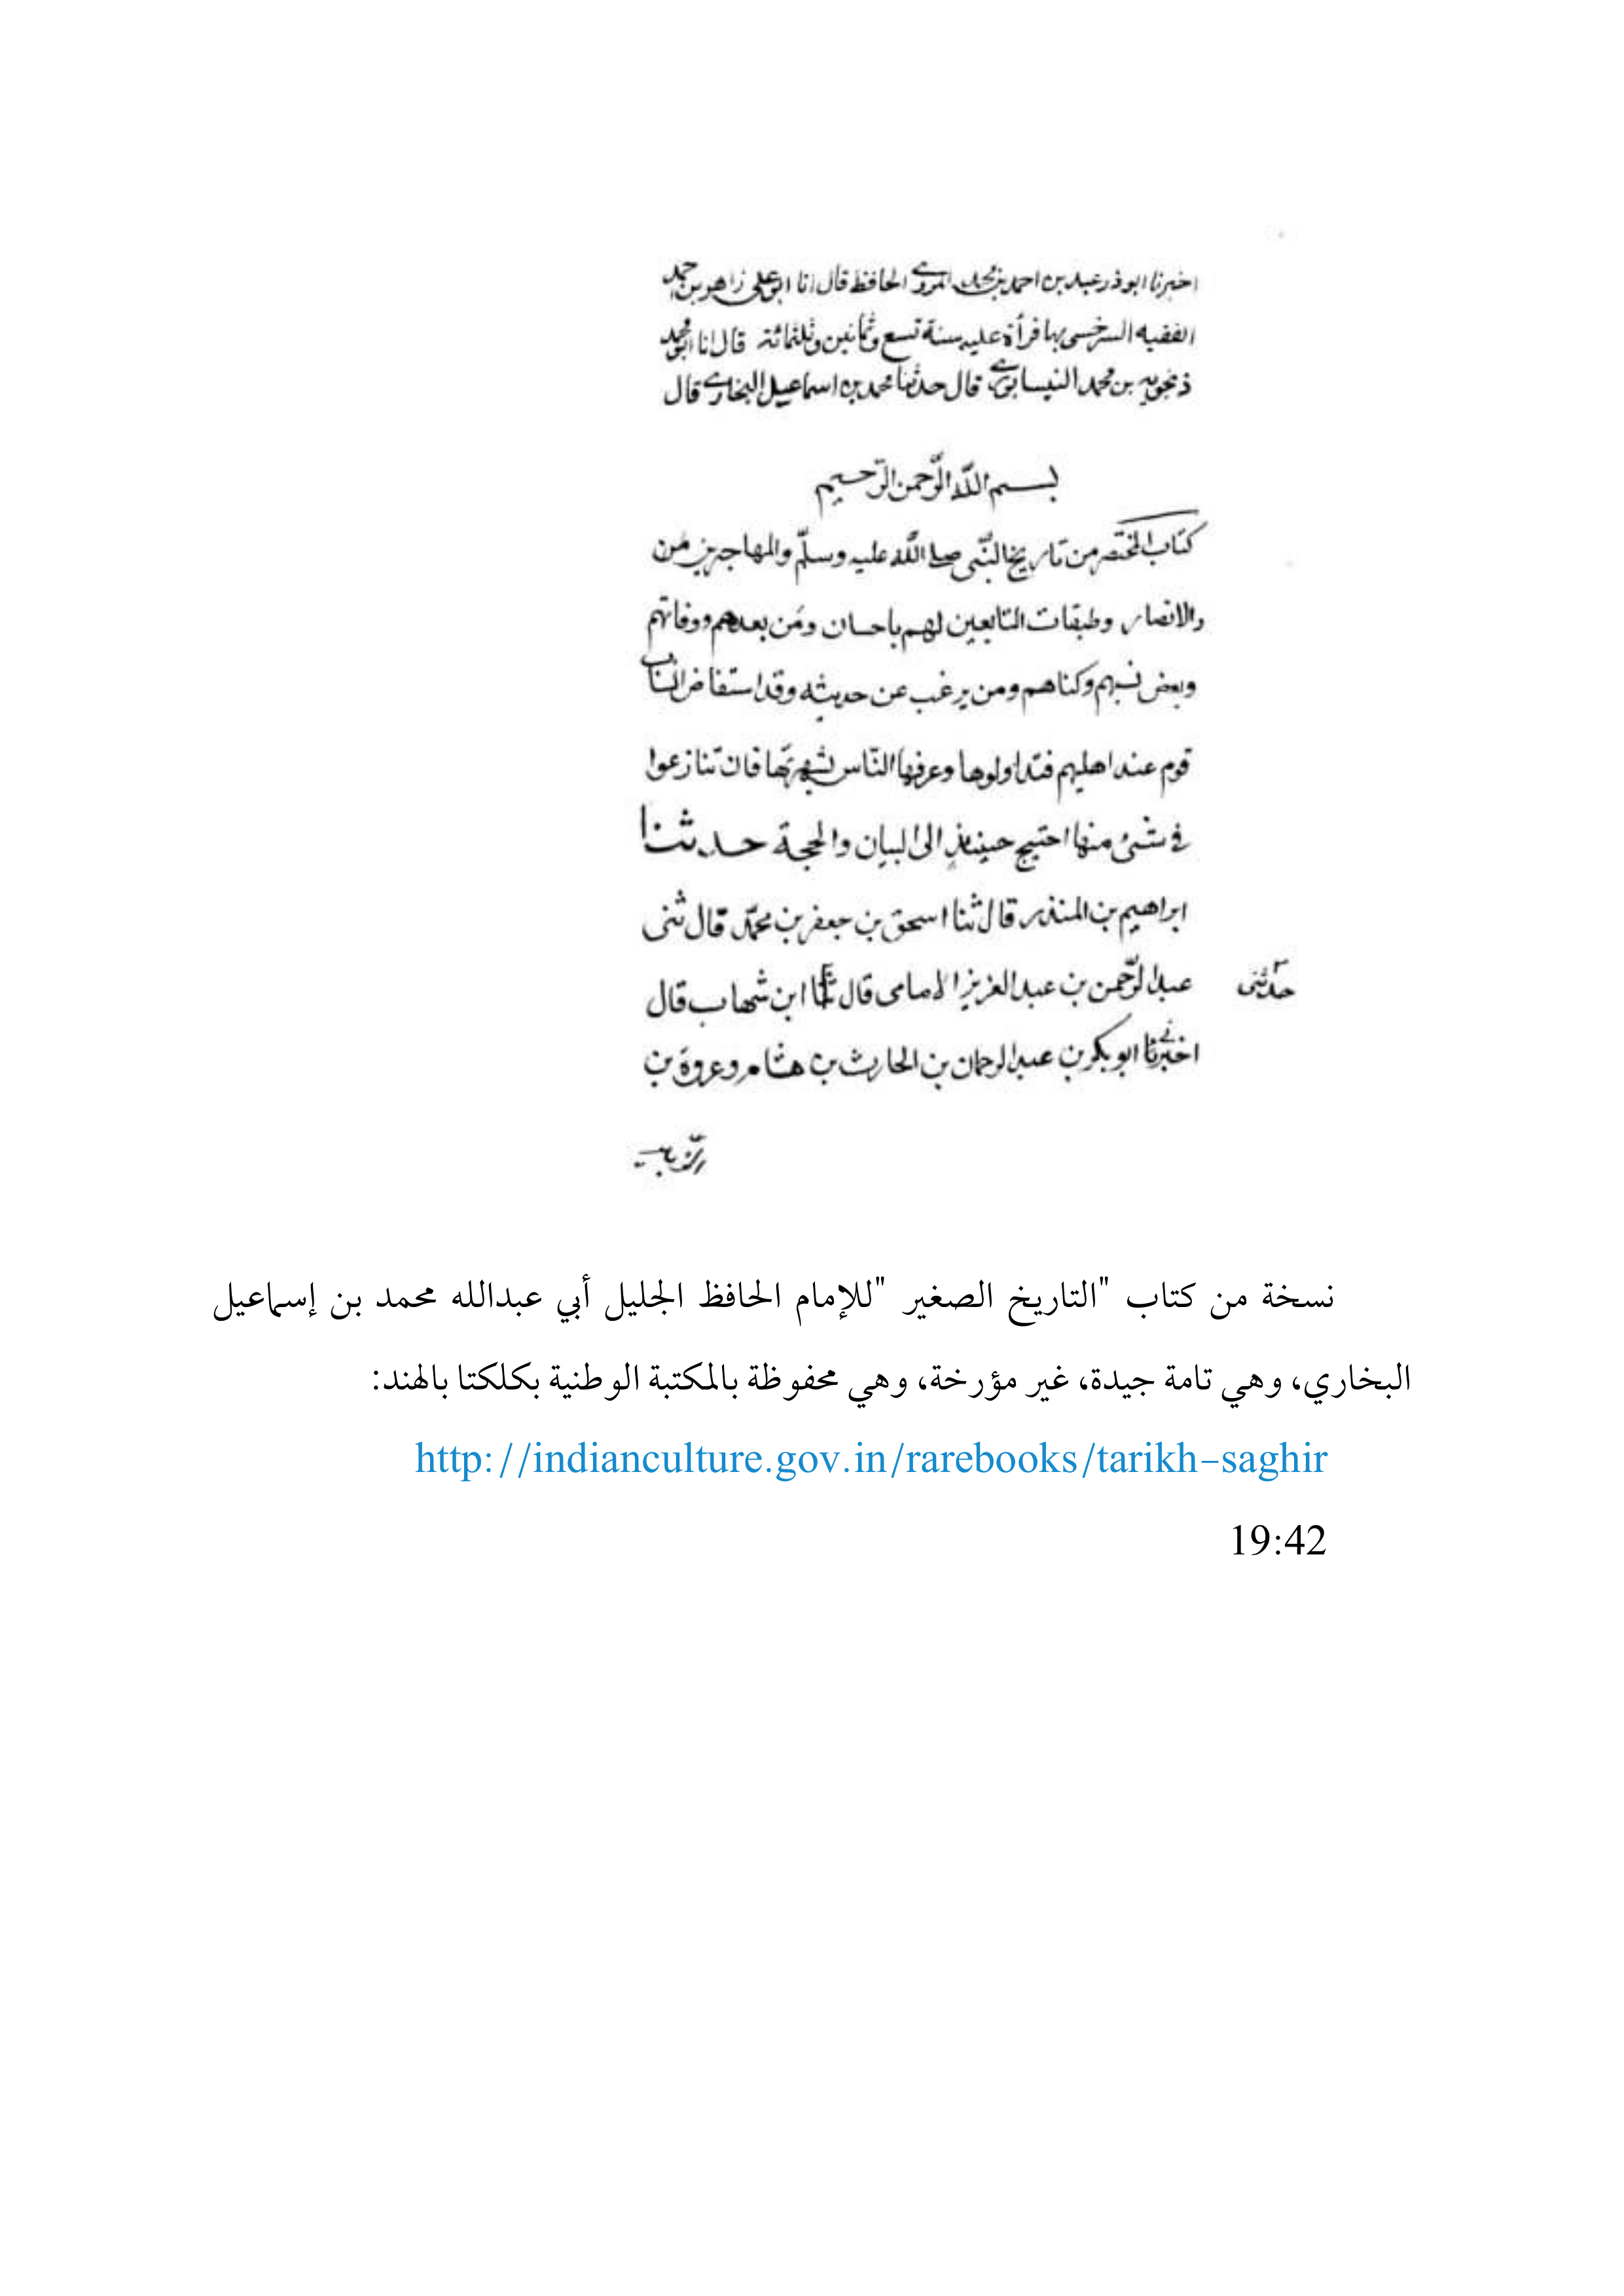 اخبرنا ابوذر عبد بن احمد بن محمد الهروي الحافظ قال انا ابو علي زاهر بن احمد
الفقيه السرخسى بها قرأة عليه سنة تسع وثمانين وثلثمائة قال انا ابو محمد
زنجويه بن محمد النيسابوري قال حدثنا محمد بن اسماعيل البخاري قال
بسم الله الرّحمن الرّحيم
كتاب المختصر من تاريخ النّبى صلى اللّه عليه وسلّم والمهاجرين من
والانصار وطبقات التابعين لهم باحسان ومَن بعدهم ووفاتهم
وبعض نسبهم وكناهم ومن يرغب عن حديثه وقد استفاض انساب
قوم عند اهليهم فتداولوها وعرفها النّاس بشهرتها فان تنازعوا
فى شئ منها احتيج حينئذٍ الى البيان والحجة حدثنا
ابراهيم بن المنذر قال ثنا اسحق بن جعفر بن محمّد قال ثنى
عبد الرّحمن بن عبد العزيز الامامى قال ثنا ابن شهاب قال
حدثنى
اخبرنا ابو بكر بن عبد الرحمان بن الحارث بن هشام وعروة بن
الزّبير
نسخة من كتاب "التاريخ الصغير "للإمام الحافظ الجليل أبي عبدالله محمد بن إسماعيل
البخاري، وهي تامة جيدة، غير مؤرخة، وهي محفوظة بالمكتبة الوطنية بكلكتا بالهند:
http://indianculture.gov.in/rarebooks/tarikh-saghir
19:42